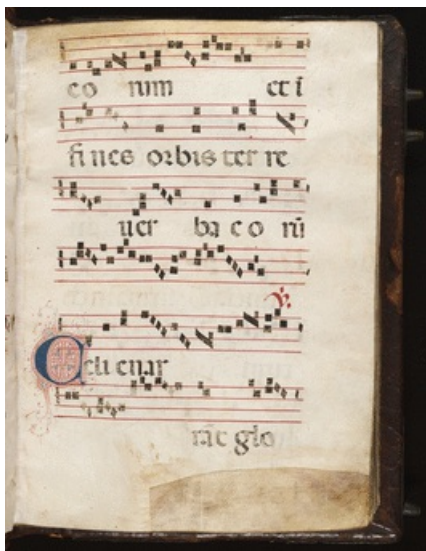 eo rum et ī
fines orbis ter re
uer ba e o rū
℣.
Celi enar
rāt glo